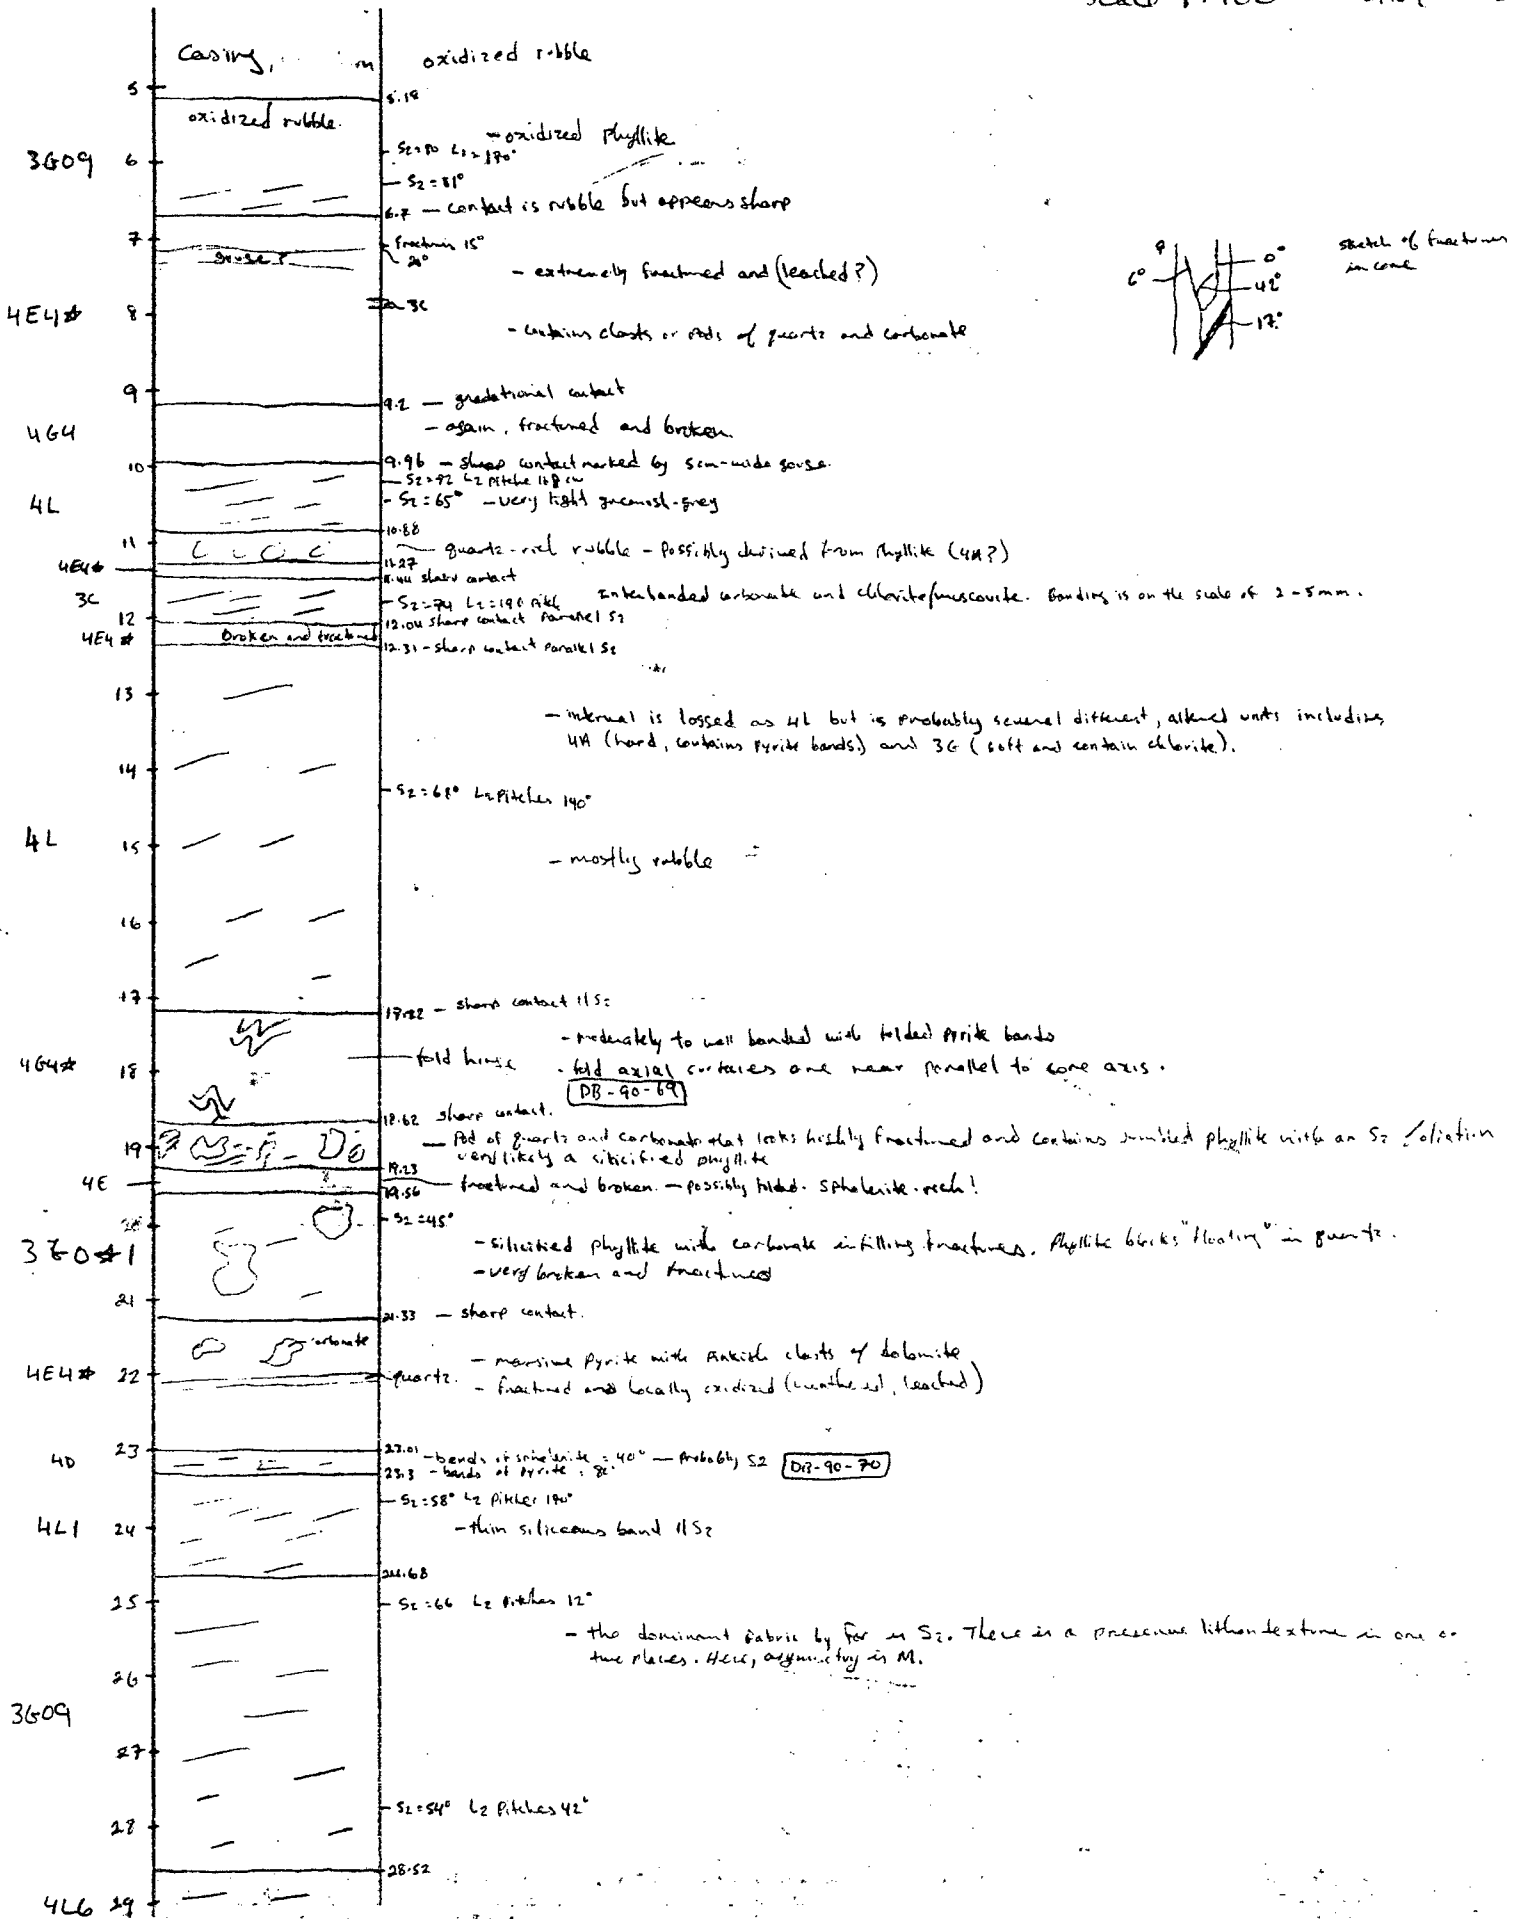 Casing, m oxidized rubble
5
5.18
oxidized rubble.
- oxidized phyllite
3G09 6
S2=81°
6.7 - contact is rubble but appears sharp
7
fractures 15°
20°
gouge?
- extremely fractured and (leached?)
sketch of fractures
in core
6° 0°
42°
17°
4E4* 8
3C
- contains clasts or pods of quartz and carbonate
9
9.2 - gradational contact
4G4
- again, fractured and broken.
10
9.96 - sharp contact marked by 5cm-wide gouge.
4L
- S2=65° - very light greenish-grey
10.88
11
quartz-rich rubble - possibly derived from phyllite (4A?)
11.27
4E4*
11.44 sharp contact
3C
- S2=74 L2=190 Interbanded carbonate and chlorite/muscovite. Banding is on the scale of 2-5mm.
12
12.04 sharp contact parallel S2
4E4* broken and fractured
12.31 - sharp contact parallel S2
13
- interval is logged as 4L but is probably several different, altered units including
4A (hard, contains pyrite bands) and 3G (soft and contain chlorite).
14
- S2=68° L2 pitches 140°
4L 15
- mostly rubble
16
17
17.22 - sharp contact ||S2
- moderately to well banded with folded pyrite bands
4G4* 18
fold hinge - fold axial surfaces are near parallel to core axis.
DB-90-69
18.62 sharp contact.
19
- Pod of quartz and carbonate that looks highly fractured and contains jumbled phyllite with an S2 foliation
very likely a silicified phyllite
19.23
4E
fractured and broken. - possibly folded. Sphalerite-rich!
19.56
20
- S2=45°
3G0*1
- silicified phyllite with carbonate infilling fractures. Phyllite blocks "floating" in quartz.
- very broken and fractured
21
21.33 - sharp contact.
carbonate
- massive pyrite with pinkish clasts of dolomite
4E4* 22
quartz.
- fractured and locally oxidized (weathered, leached)
23
23.01 - bands of sphalerite = 40° - probably S2 DB-90-70
4D
23.3 - bands of pyrite
- S2=58° L2 pitches 190°
4L1 24
- thin siliceous band ||S2
24.68
25
- S2=66 L2 pitches 12°
- the dominant fabric by far is S2. There is a lithon texture in one or
two places. Here, asymmetry is M.
26
3G09
27
- S2=54° L2 pitches 42°
28
28.52
4L6 29